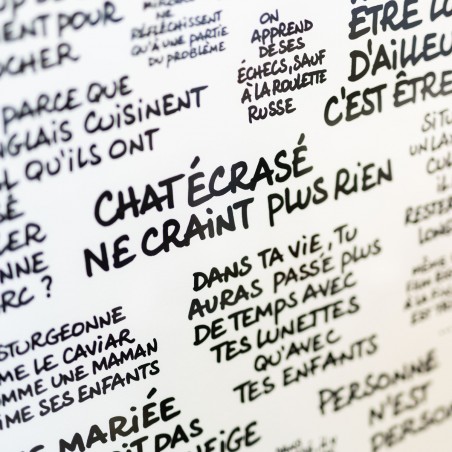 ENT POUR
OCHER
NE
RÉFLÉCHISSENT
QU'À UNE PARTIE
DU PROBLÈME
ON
APPREND
DE SES
ÉCHECS, SAUF
À LA ROULETTE
RUSSE
ÊTRE LO
D'AILLEU
C'EST ÊTRE
PARCE QUE
NGLAIS CUISINENT
L QU'ILS ONT
SÉ
LER
ONNE
ARC ?
CHAT ÉCRASÉ
NE CRAINT PLUS RIEN
SI TU
UN LA
CUL
IL
RESTER
LONG
DANS TA VIE, TU
AURAS PASSÉ PLUS
DE TEMPS AVEC
TES LUNETTES
QU'AVEC
TES ENFANTS
MÊME
STURGEONNE
ME LE CAVIAR
OMME UNE MAMAN
IME SES ENFANTS
MARIÉE
IT PAS
NEIGE
PERSONNE
N'EST
PERSON